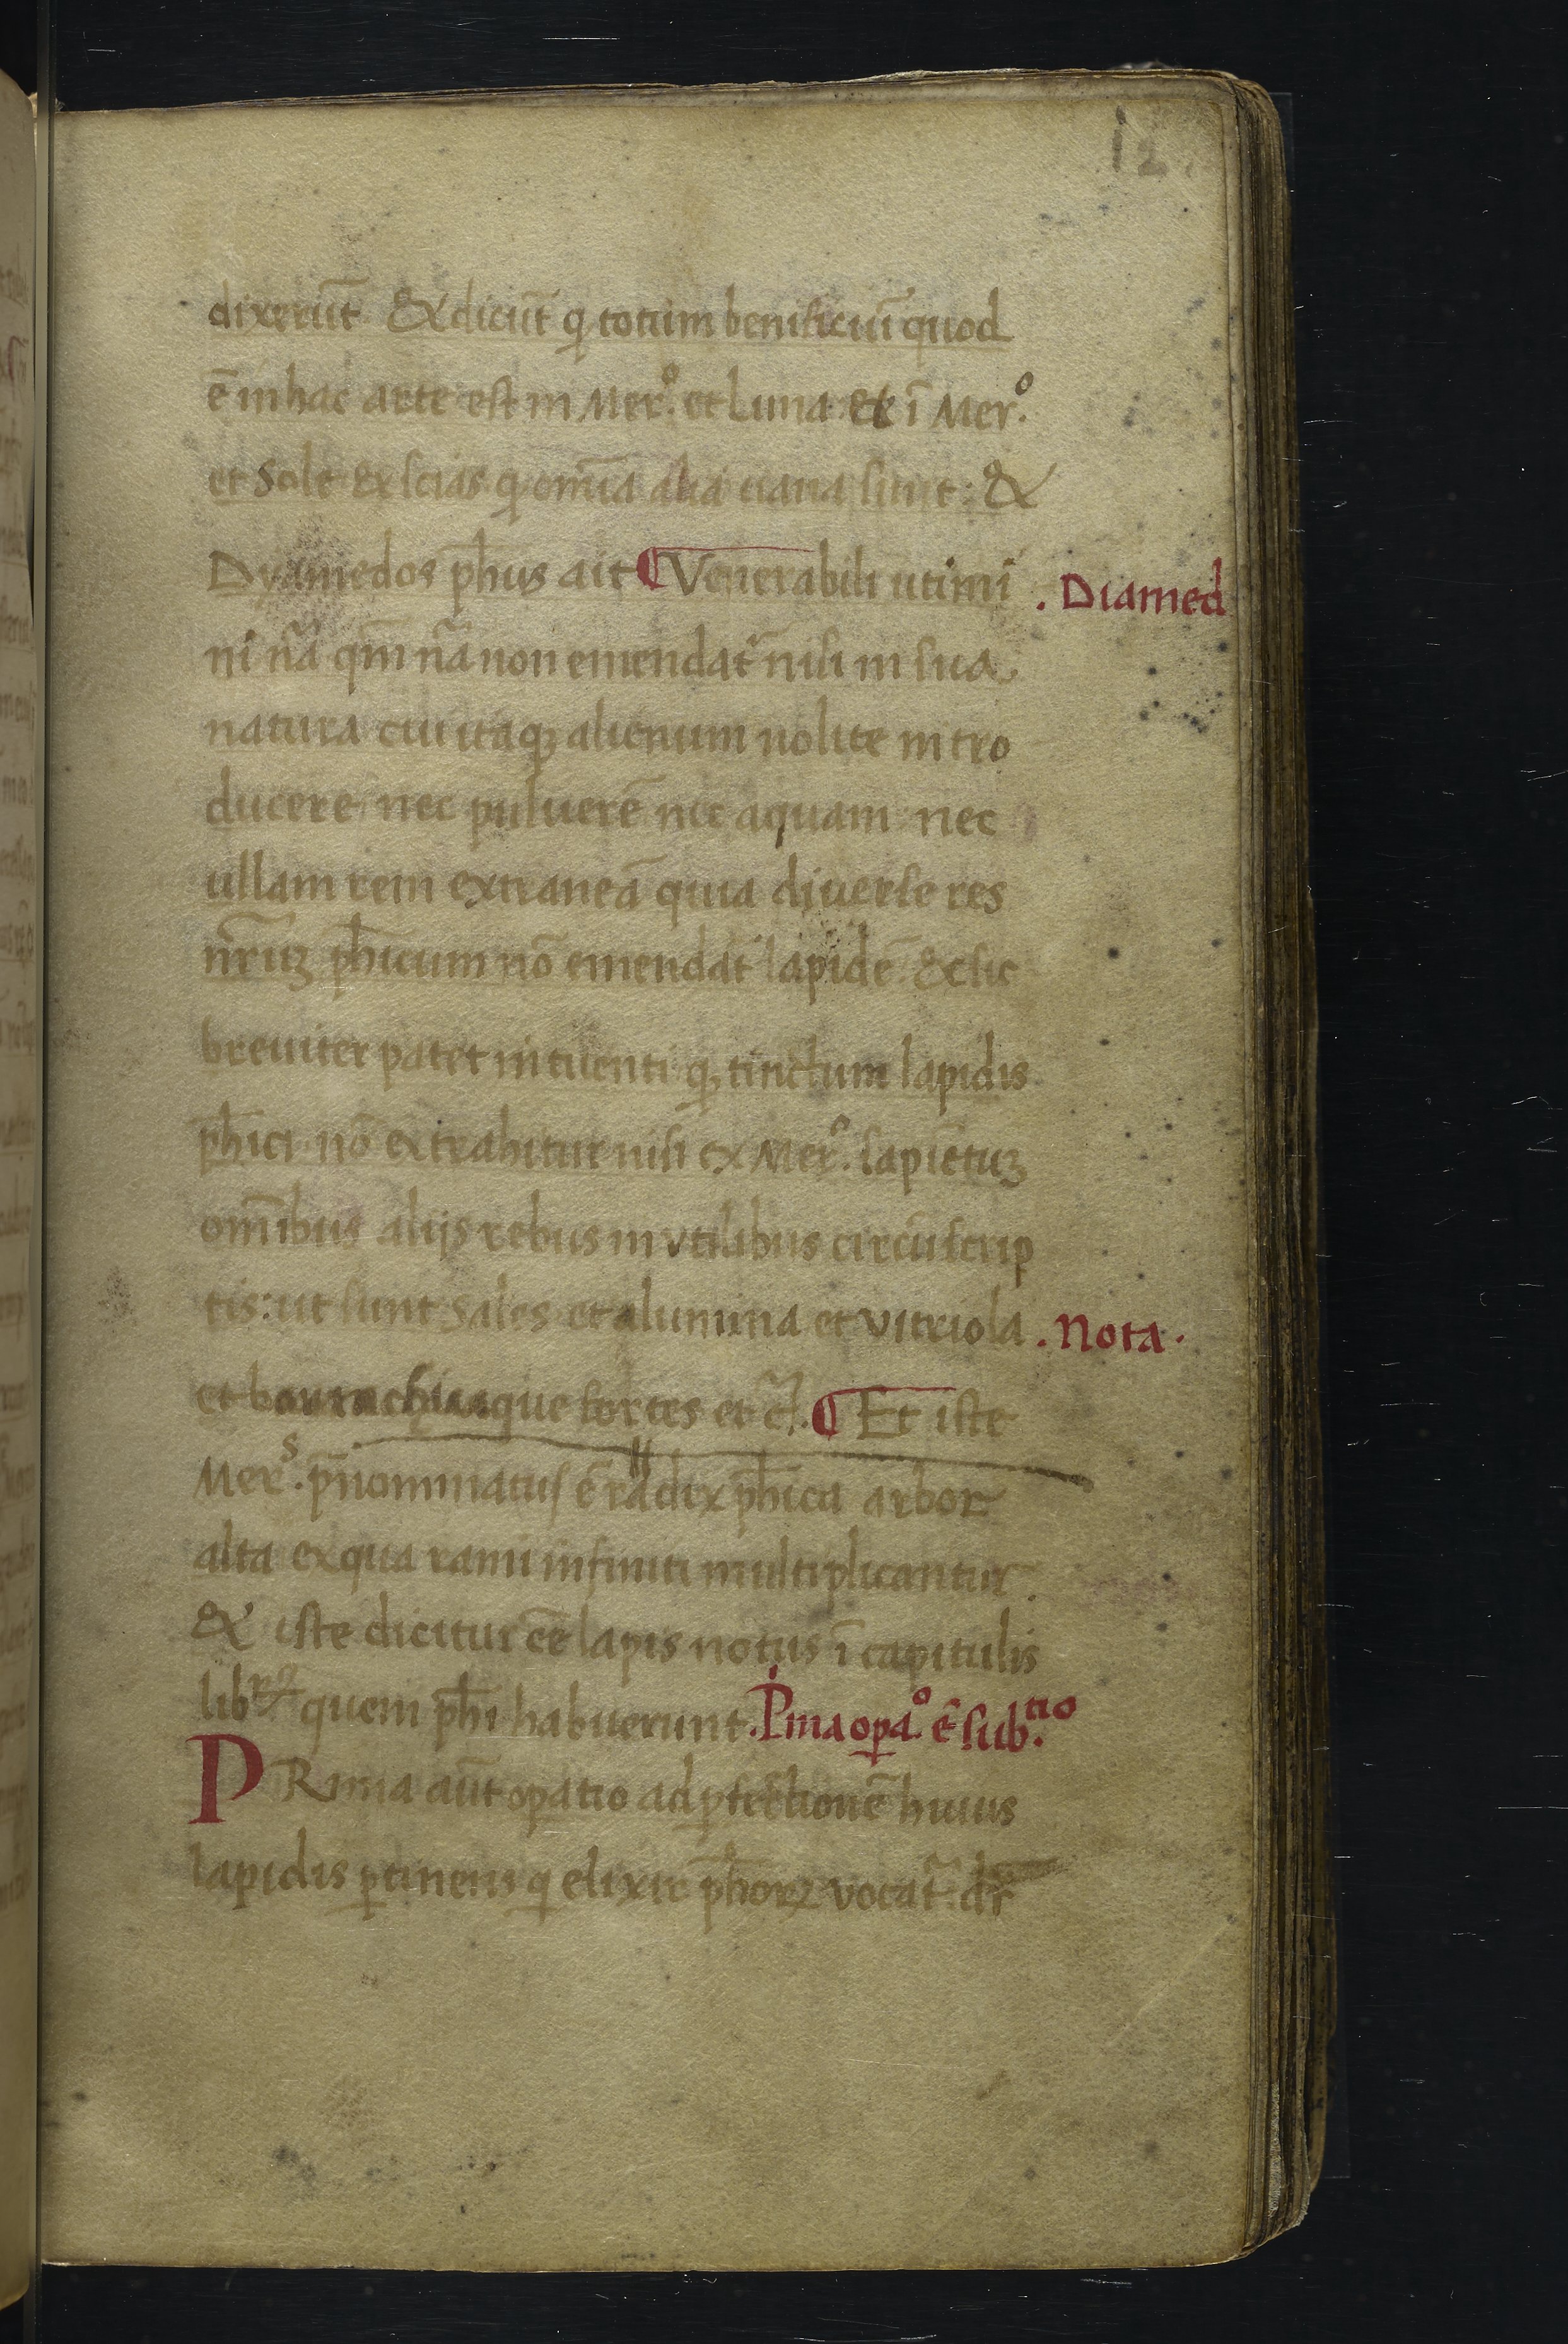 12
dixerūt. & dicūt q totum benificiū quod
ē in hac arte est in Mer.º et Luna et ī Mer.º
et Sole & scias q omīa alia uana sunt. &
Dyamedos ph̄us ait ¶ Venerabili utimi
. Diamed
ni nā qm̄ nā non emendat᷑ nisi in sua
natura cui itaqꝫ alienum nolite intro
ducere nec puluerē nec aquam nec
ullam rem extraneā quia diuerse res
nr̄uꝫ ph̄icum nō emendāt lapidē & sic
breuiter patet intuenti qꝫ tinctum lapidis
ph̄ici nō extrahitur nisi ex Mer.º sapiētuꝫ
om̄ibus alijs rebus in vtilibus circūscrip
tis: ut sunt sales et alumina et vitriola
. Nota .
et que fortes et c̄. ¶ Et iste
Mer.s p̄nominatus ē radix ph̄ica arbor
alta ex qua rami infiniti multiplicantur.
& iste dicitur eē lapis notus ī capitulis
libroꝝ quem ph̄i habuerunt. Pima oꝑa.º ē sub.tio
PRima aūt oꝑatio ad ꝑfectionē huius
lapidis ꝑtinens q elixir ph̄orꝝ vocat᷑. dr̄